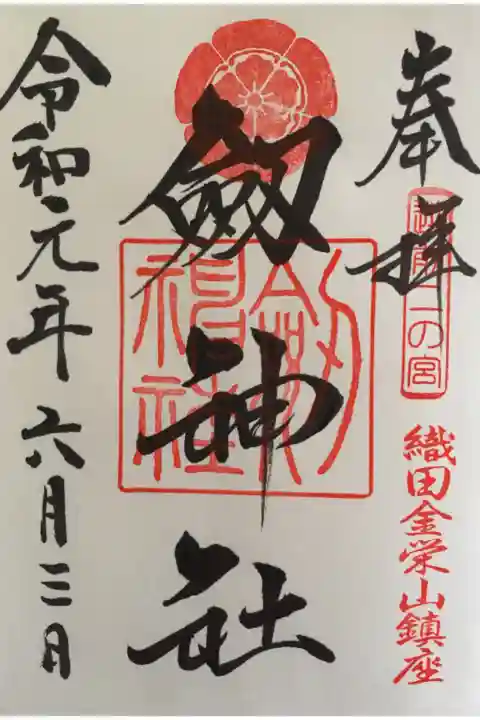 奉拝
越前二の宮
織田金栄山鎮座
劔神社
劔神社
令和元年六月三日